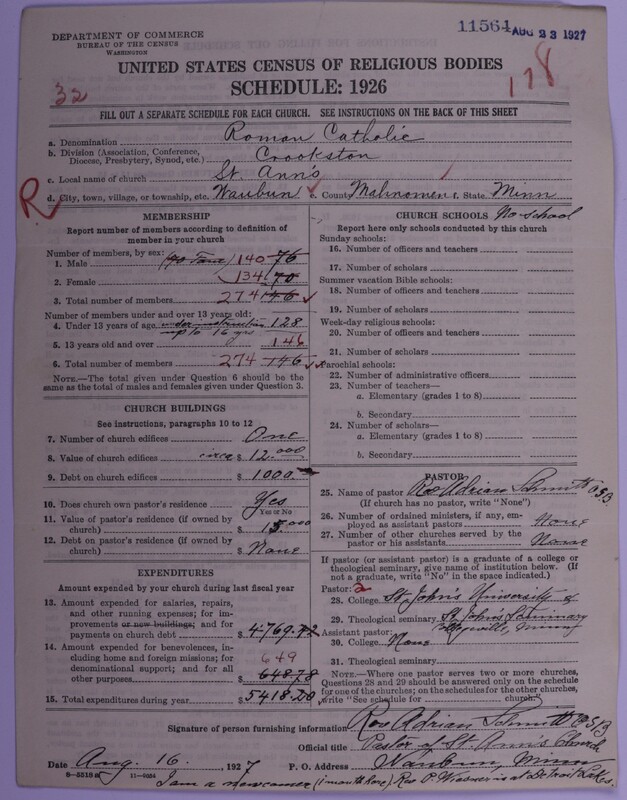 11564 AUG 23 1927
DEPARTMENT OF COMMERCE
BUREAU OF THE CENSUS
WASHINGTON
UNITED STATES CENSUS OF RELIGIOUS BODIES
SCHEDULE: 1926
32
178
FILL OUT A SEPARATE SCHEDULE FOR EACH CHURCH. SEE INSTRUCTIONS ON THE BACK OF THIS SHEET
a. Denomination Roman Catholic
b. Division (Association, Conference, Diocese, Presbytery, Synod, etc.) Crookston
c. Local name of church St. Ann's
R
d. City, town, village, or township, etc. Waubun e. County Mahnomen f. State Minn
MEMBERSHIP
Report number of members according to definition of
member in your church
Number of members, by sex:
1. Male (70 Fam) 140 76
2. Female 134 70
3. Total number of members 274 146
Number of members under and over 13 years old:
4. Under 13 years of age under instruction up to 16 yrs 128
5. 13 years old and over 146
6. Total number of members 274 146
NOTE.—The total given under Question 6 should be
the same as the total of males and females given under Question 3.
CHURCH BUILDINGS
See instructions, paragraphs 10 to 12
7. Number of church edifices One
8. Value of church edifices circa $ 12.000
9. Debt on church edifices $ 1000.
10. Does church own pastor's residence Yes
Yes or No
11. Value of pastor's residence (if owned by
church) $ 15.000
12. Debt on pastor's residence (if owned by
church) $ None
EXPENDITURES
Amount expended by your church during last fiscal year
13. Amount expended for salaries, repairs,
and other running expenses; for im-
provements or new buildings; and for
payments on church debt $ 4769.42
14. Amount expended for benevolences,
including home and foreign missions; for
denominational support; and for all
other purposes $ 649 648.78
15. Total expenditures during year $ 5418.20
CHURCH SCHOOLS No school
Report here only schools conducted by this church
Sunday schools:
16. Number of officers and teachers
17. Number of scholars
Summer vacation Bible schools:
18. Number of officers and teachers
19. Number of scholars
Week-day religious schools:
20. Number of officers and teachers
21. Number of scholars
Parochial schools:
22. Number of administrative officers
23. Number of teachers—
a. Elementary (grades 1 to 8)
b. Secondary
24. Number of scholars—
a. Elementary (grades 1 to 8)
b. Secondary
PASTOR
25. Name of pastor Rev Adrian Schmitt OSB
(If church has no pastor, write "None")
26. Number of ordained ministers, if any, em-
ployed as assistant pastors None
27. Number of other churches served by the
pastor or his assistants None
If pastor (or assistant pastor) is a graduate of a college or
theological seminary, give name of institution below. (If
not a graduate, write "No" in the space indicated.)
Pastor: 2
28. College St John's University &
29. Theological seminary St John's Seminary
Collegeville, Minn
Assistant pastor:
30. College None
31. Theological seminary
NOTE.—Where one pastor serves two or more churches,
Questions 28 and 29 should be answered only on the schedule
for one of the churches; on the schedules for the other churches,
write "See schedule for church."
Signature of person furnishing information Rev Adrian Schmitt OSB
Official title Pastor of St. Ann's Church
Date Aug. 16. 1927 P. O. Address Waubun, Minn
9-5519a 11-0484
I am a newcomer (1 month here). Rev P. Wiesner is at Detroit Lakes.